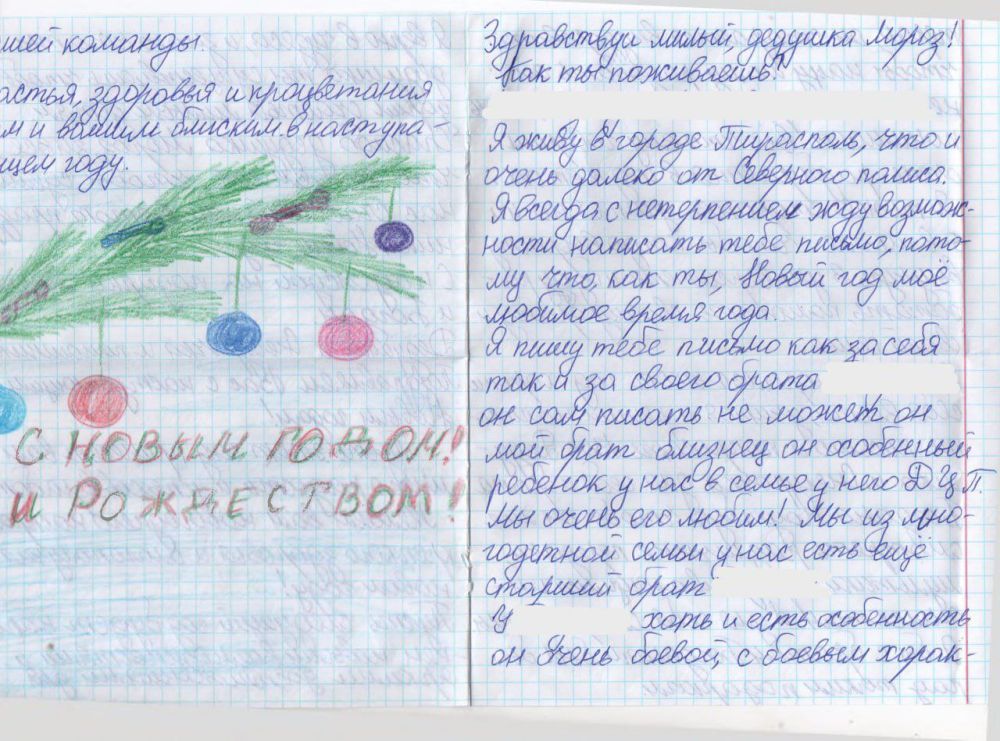 шей команды.
астья, здоровья и процветания
м и вашим близким в наступа-
щем году.
С НОВЫМ ГОДОМ!
И РОЖДЕСТВОМ!
Здравствуй милый, дедушка Мороз!
Как ты поживаешь?
Я живу в городе Тирасполь, что и
очень далеко от Северного полюса.
Я всегда с нетерпением жду возмож-
ности написать тебе письмо, пото-
му что, как ты, Новый год моё
любимое время года.
Я пишу тебе письмо как за себя
так и за своего брата
он сам писать не может он
мой брат близнец он особенный
ребенок у нас в семье у него ДЦП.
Мы очень его любим! Мы из мно-
годетной семьи у нас есть ещё
старший брат
У хоть и есть особенность
он очень боевой, с боевым харак-